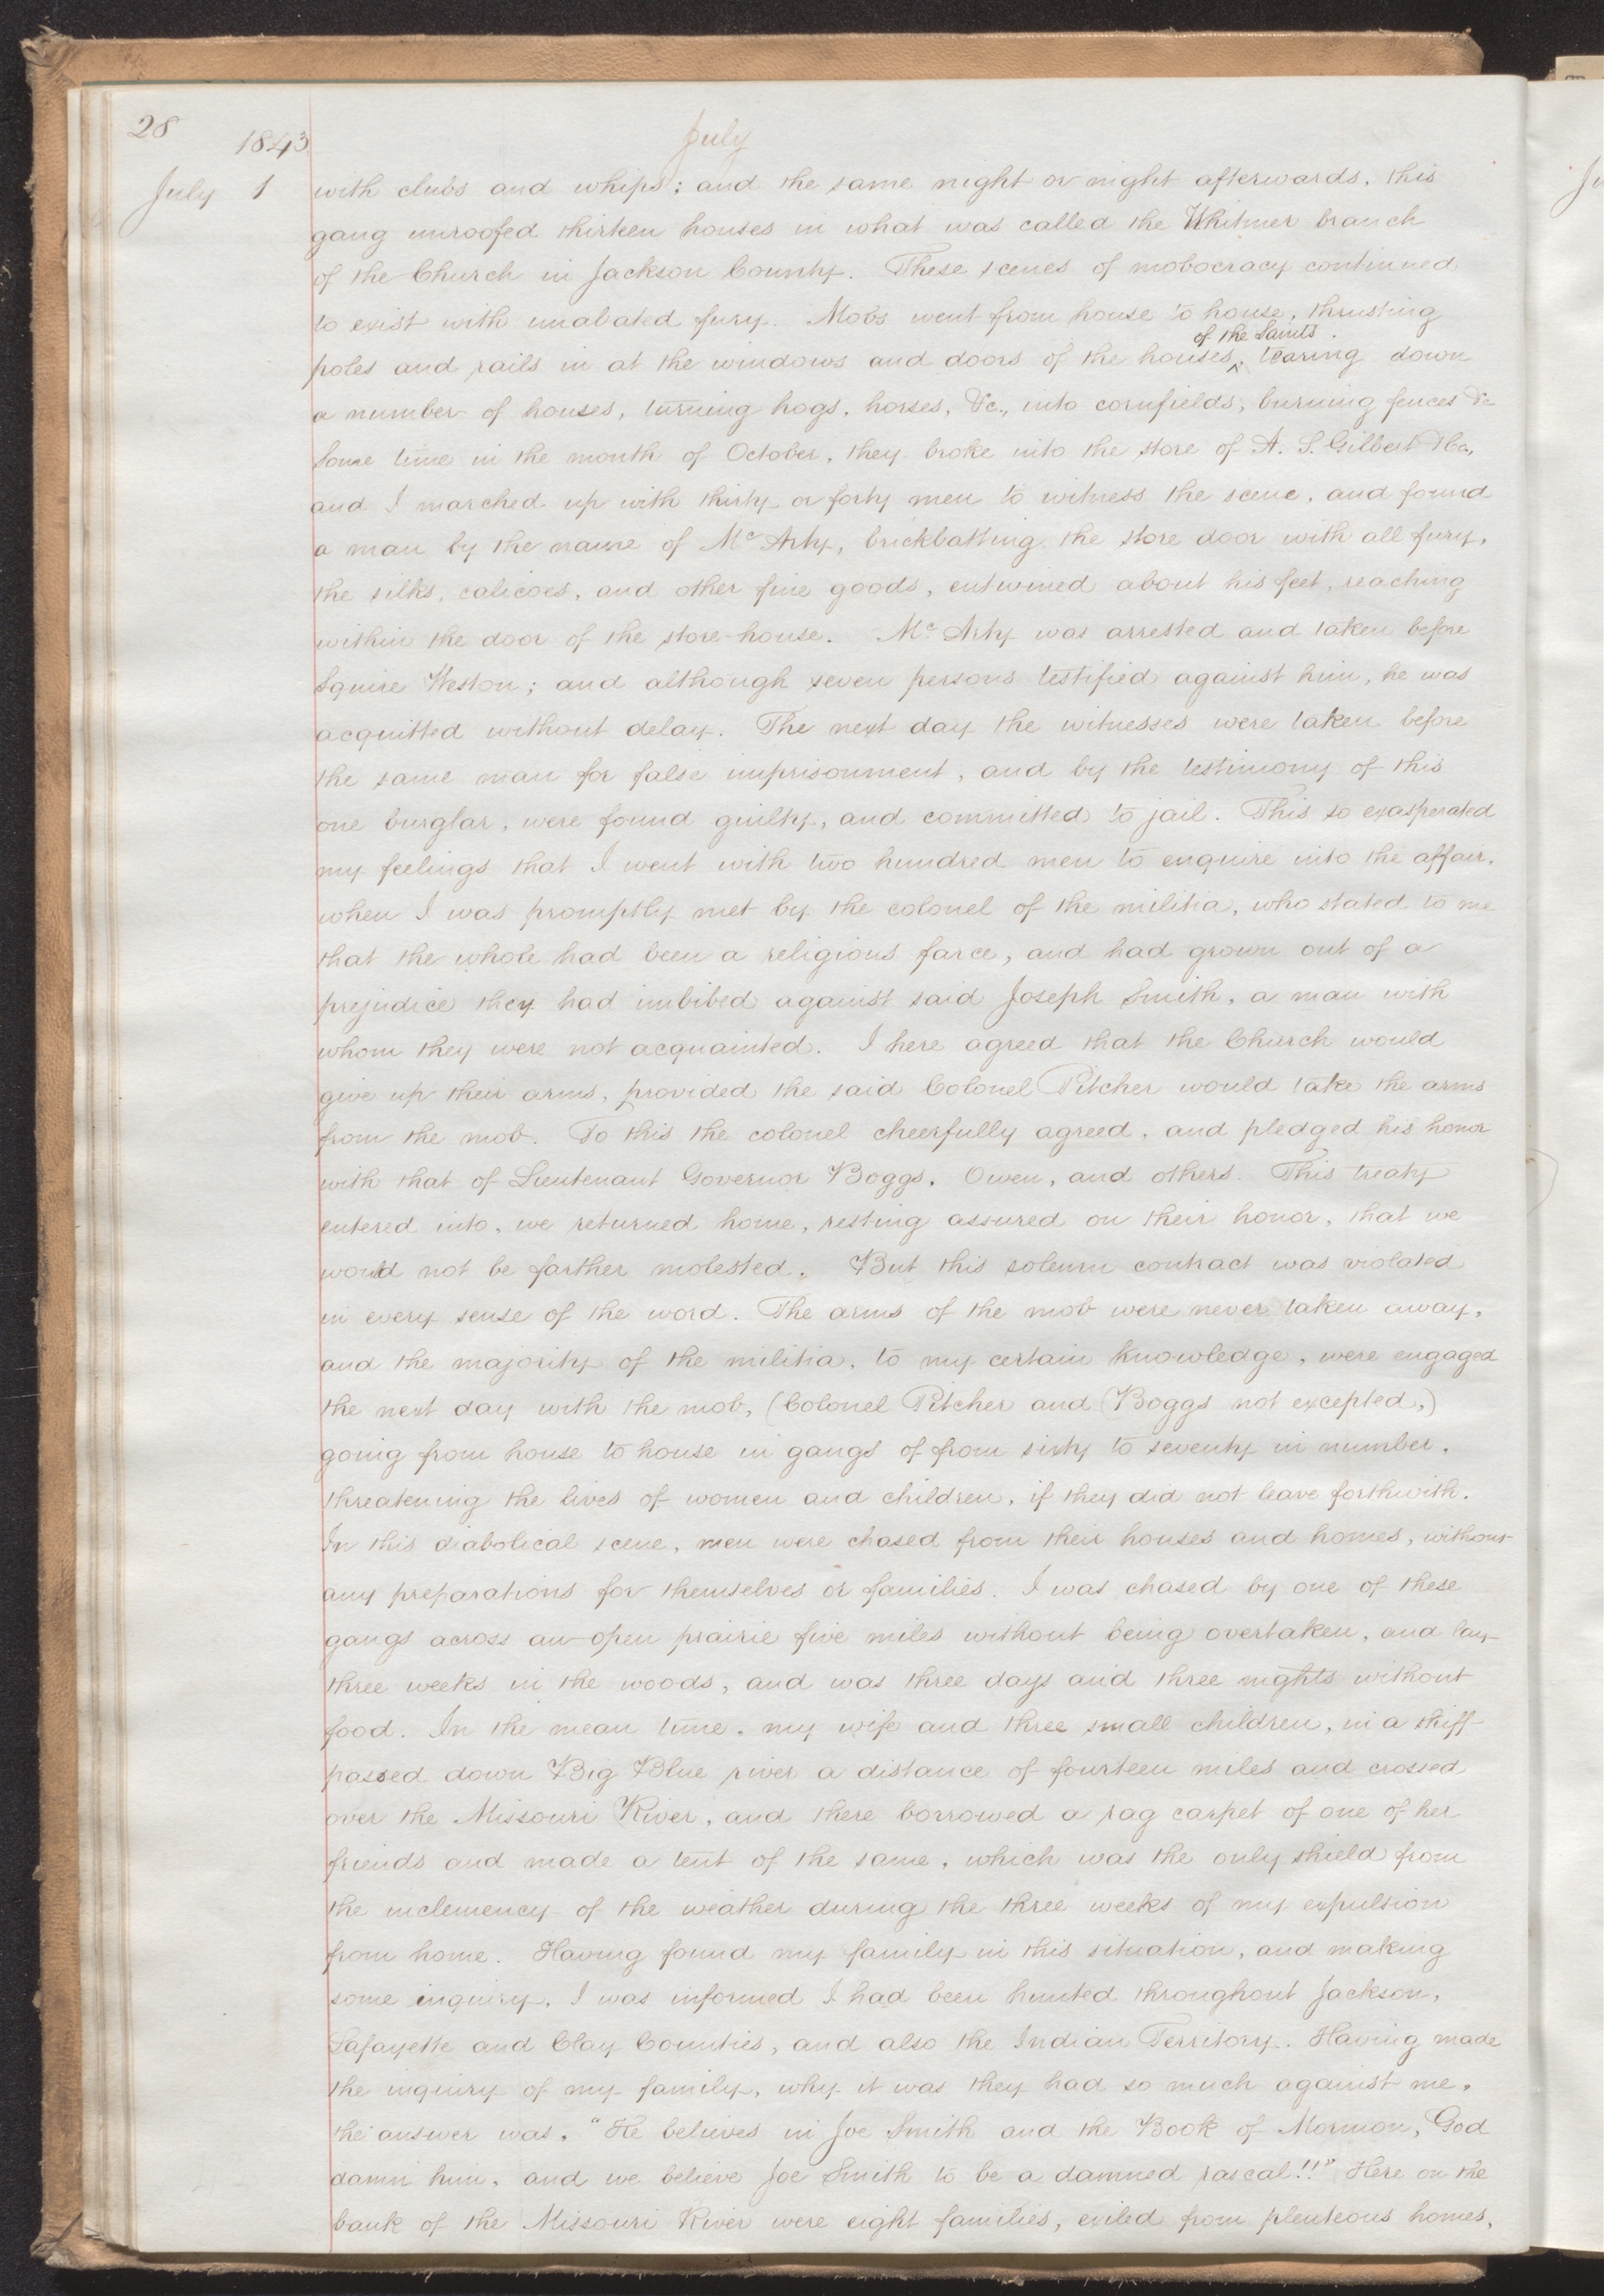 28
1843
July
July 1
with clubs and whips; and the same night or night afterwards, this
gang unroofed thirteen houses in what was called the Whitmer branch
of the Church in Jackson County. These scenes of mobocracy continued
to exist with unabated fury. Mobs went from house to house, thrusting
of the Saints.
poles and rails in at the windows and doors of the houses, ^ tearing down
a number of houses, turning hogs, horses, &c., into cornfields, burning fences &c
Some time in the month of October, they broke into the store of A. S. Gilbert & Co.,
and I marched up with thirty or forty men to witness the scene, and found
a man by the name of Mc Arty, brickbatting the store door with all fury,
the silks, calicoes, and other fine goods, entwined about his feet, reaching
within the door of the store-house. Mc Arty was arrested and taken before
Squire Weston; and although seven persons testified against him, he was
acquitted without delay. The next day the witnesses were taken before
the same man for false imprisonment, and by the testimony of this
one burglar, were found guilty, and committed to jail. This so exasperated
my feelings that I went with two hundred men to enquire into the affair,
when I was promptly met by the colonel of the militia, who stated to me
that the whole had been a religious farce, and had grown out of a
prejudice they had imbibed against said Joseph Smith, a man with
whom they were not acquainted. I here agreed that the Church would
give up their arms, provided the said Colonel Pitcher would take the arms
from the mob. To this the colonel cheerfully agreed, and pledged his honor
with that of Lieutenant Governor Boggs, Owen, and others. This treaty
entered into, we returned home, resting assured on their honor, that we
would not be farther molested. But this solemn contract was violated
in every sense of the word. The arms of the mob were never taken away,
and the majority of the militia, to my certain knowledge, were engaged
the next day with the mob, (Colonel Pitcher and Boggs not excepted,)
going from house to house in gangs of from sixty to seventy in number,
threatening the lives of women and children, if they did not leave forthwith.
In this diabolical scene, men were chased from their houses and homes, without
any preparations for themselves or families. I was chased by one of these
gangs across an open prairie five miles without being overtaken, and lay
three weeks in the woods, and was three days and three nights without
food. In the mean time, my wife and three small children, in a skiff
passed down Big Blue river a distance of fourteen miles and crossed
over the Missouri River, and there borrowed a rag carpet of one of her
friends and made a tent of the same, which was the only shield from
the inclemency of the weather during the three weeks of my expulsion
from home. Having found my family in this situation, and making
some inquiry, I was informed I had been hunted throughout Jackson,
Lafayette and Clay Counties, and also the Indian Territory. Having made
the inquiry of my family, why it was they had so much against me,
the answer was, "He believes in Joe Smith and the Book of Mormon, God
damn him, and we believe Joe Smith to be a damned rascal!!" Here on the
bank of the Missouri River were eight families, exiled from plenteous homes,